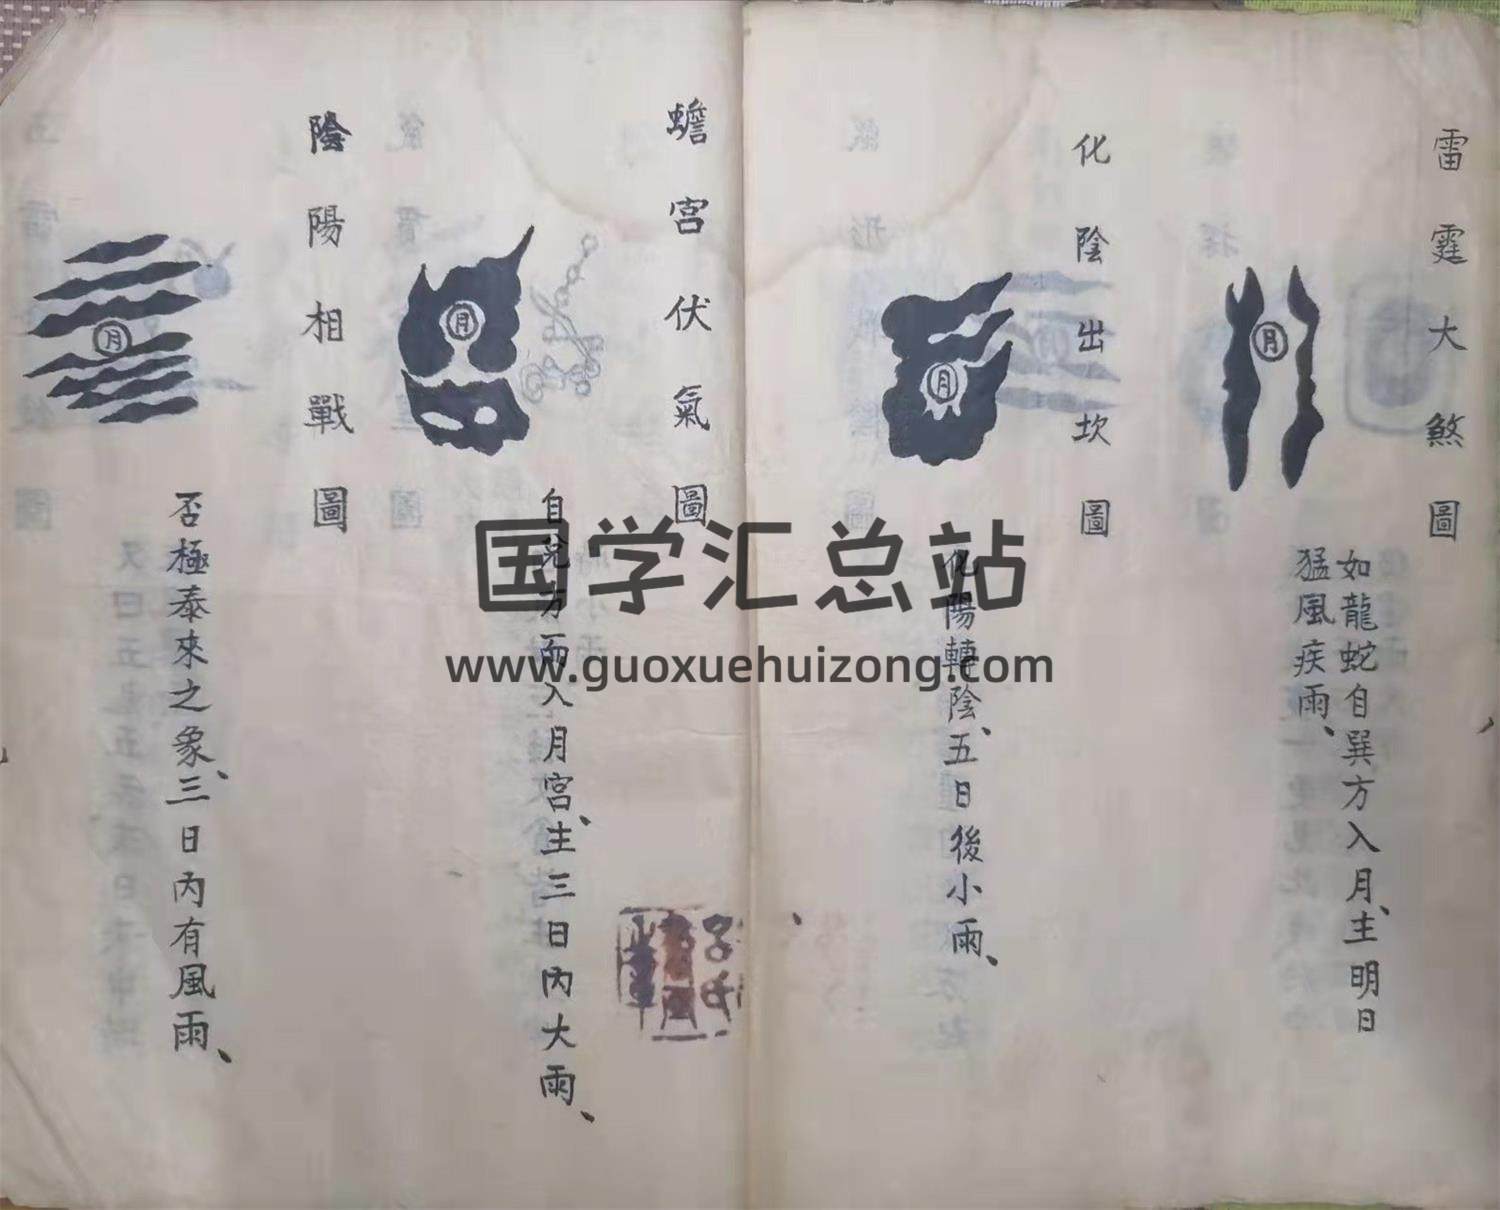 雷霆大煞圖
月
如龍蛇自巽方入月、主明日
猛風疾雨、
化陰出坎圖
月
化陽轉陰、五日後小雨、
蟾宮伏氣圖
月
自兌方而入月宮、主三日內大雨、
陰陽相戰圖
月
否極泰來之象、三日內有風雨、
国学汇总站
www.guoxuehuizong.com